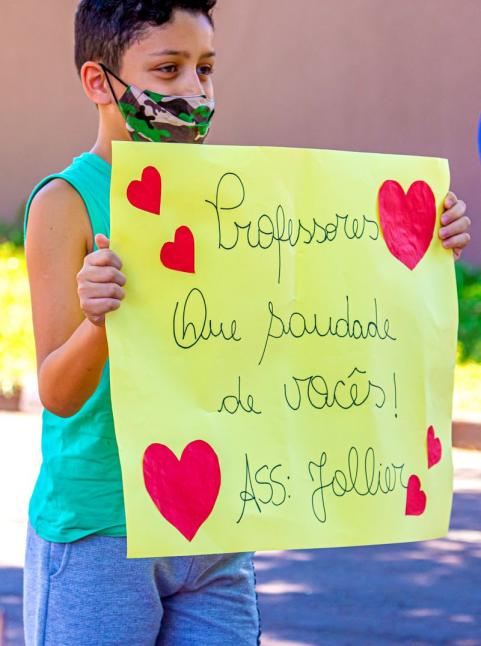 Professores
Que saudade
de vocês!
ASS: Jollier